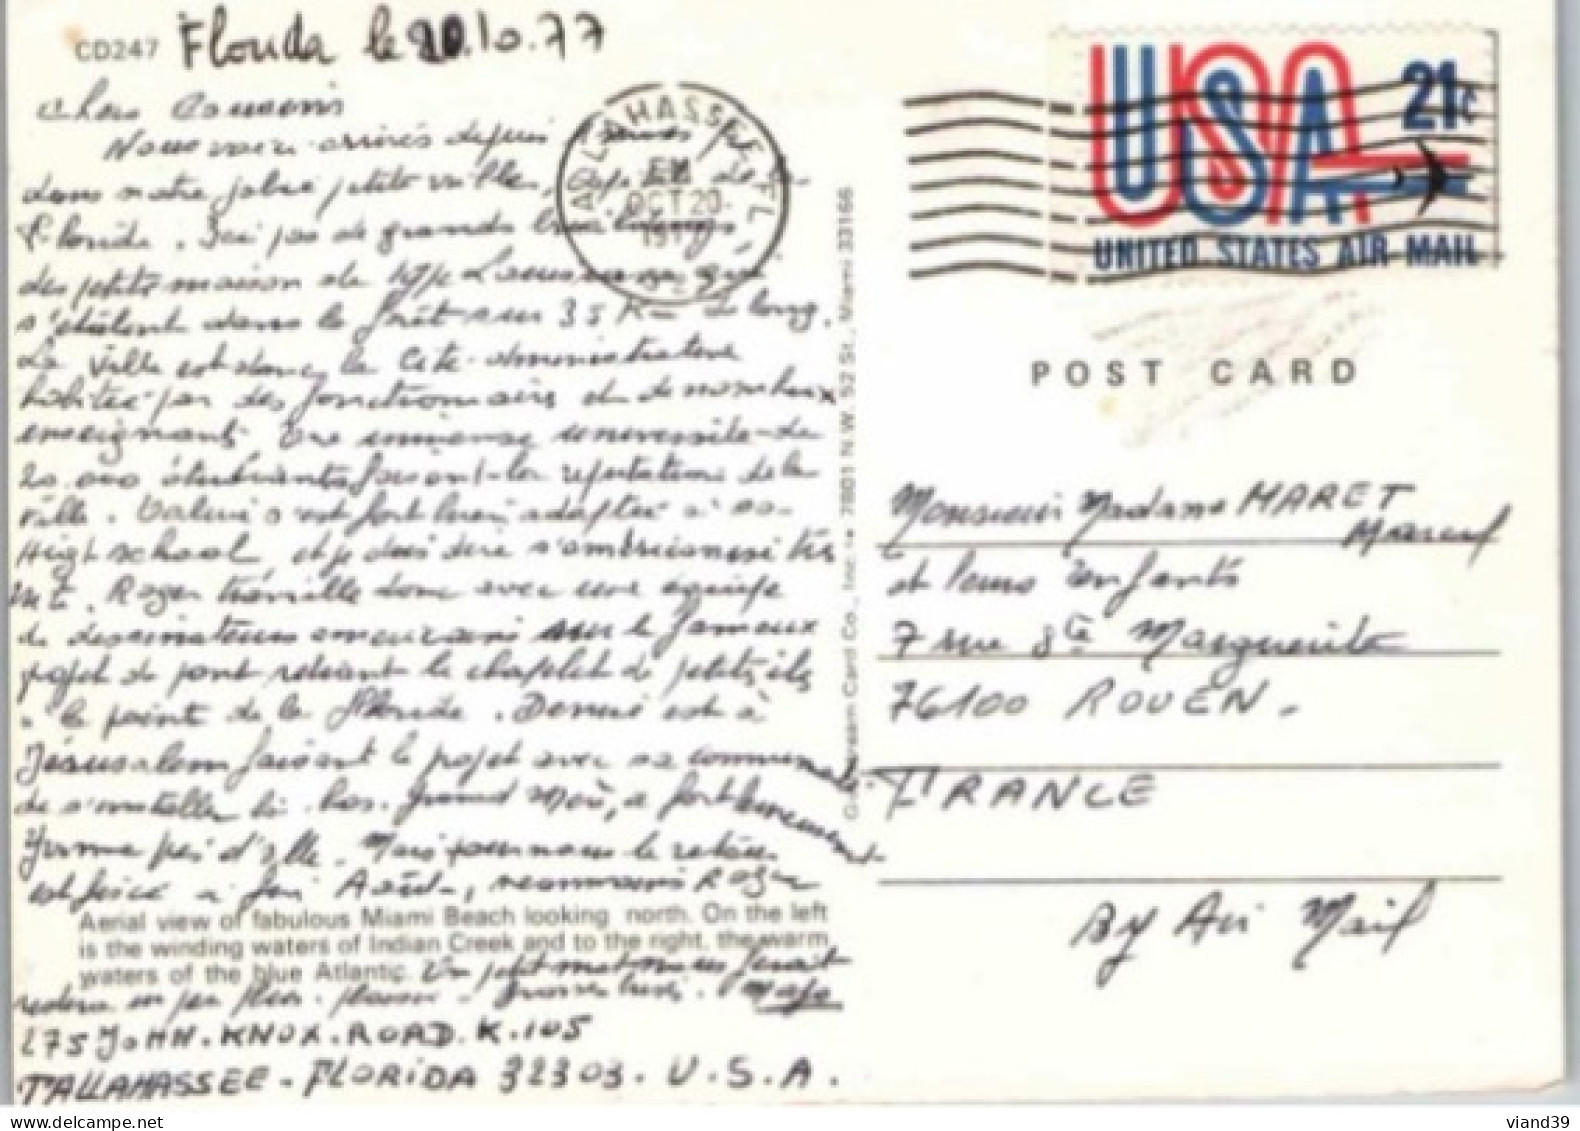 CD247 Florida le 20.10.77
Chers Cousins
Nous voici arrivés depuis
dans notre jolie petite ville, Capitale de la
Floride. Ici pas de grands buildings,
des petites maison de type Louisiane qui
s'étalent dans la forêt sur 35 Km de long.
La ville est donc la Cité administrative
habitée par des fonctionnaires et de nombreux
enseignants. Une immense université de
20.000 étudiants faisant la réputation de la
ville. Valérie s'est fort bien adaptée à sa
High school, et je dois dire s'américanise très
vite. Roger travaille donc avec une équipe
de dessinateurs américains sur le fameux
projet de pont reliant le chapelet de petits îles
à la pointe de la Floride. Denise est à
Jérusalem faisant le projet avec sa communauté
de s'installer là-bas. Grand Moù, a fort heureusement
Yvonne près d'elle. Mais pour nous le retour
est fixé à fin Août, néanmoins Roger
Aerial view of fabulous Miami Beach looking north. On the left
is the winding waters of Indian Creek and to the right, the warm
waters of the blue Atlantic.
Un petit mot nous ferait
un peu plaisir. Grosses bises.
275 JOHN. KNOX. ROAD. K. 105
TALLAHASSEE - FLORIDA 32303. U.S.A.
TALLAHASSEE, FL
PM
OCT 20
1977
Gulfstream Card Co., Inc. 2801 N.W. 52 St., Miami 33166
USA 21c
UNITED STATES AIR MAIL
POST CARD
Monsieur Madame MARET
Marcel
et leurs enfants
7 rue Ste Marguerite
76100 ROUEN.
FRANCE
By Air Mail
viand39